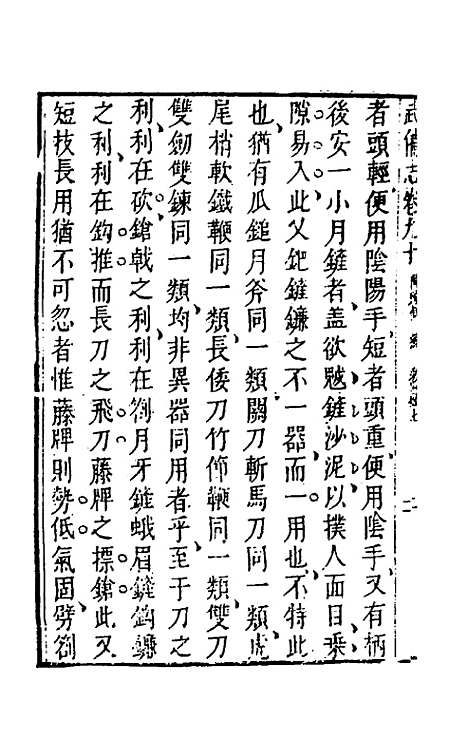 武備志卷九十
者頭輕便用陰陽手短者頭重便用陰手又有柄
後安一小月鏟者盖欲鏟沙泥以撲人面目乘
隙易入此乂鈀鏟鐮之不一器而一用也不特此
也猶有瓜鎚月斧同一類關刀斬馬刀同一類虎
尾梢軟鐵鞭同一類長倭刀竹節鞭同一類雙刀
雙劒雙鍊同一類均非異器同用者乎至于刀之
利利在砍鎗戟之利利在劄月牙鏟蛾眉鏟鈎鐮
之利利在鈎推而長刀之飛刀藤牌之標鎗此又
短技長用猶不可忽者惟藤牌則勢低氣固劈劄